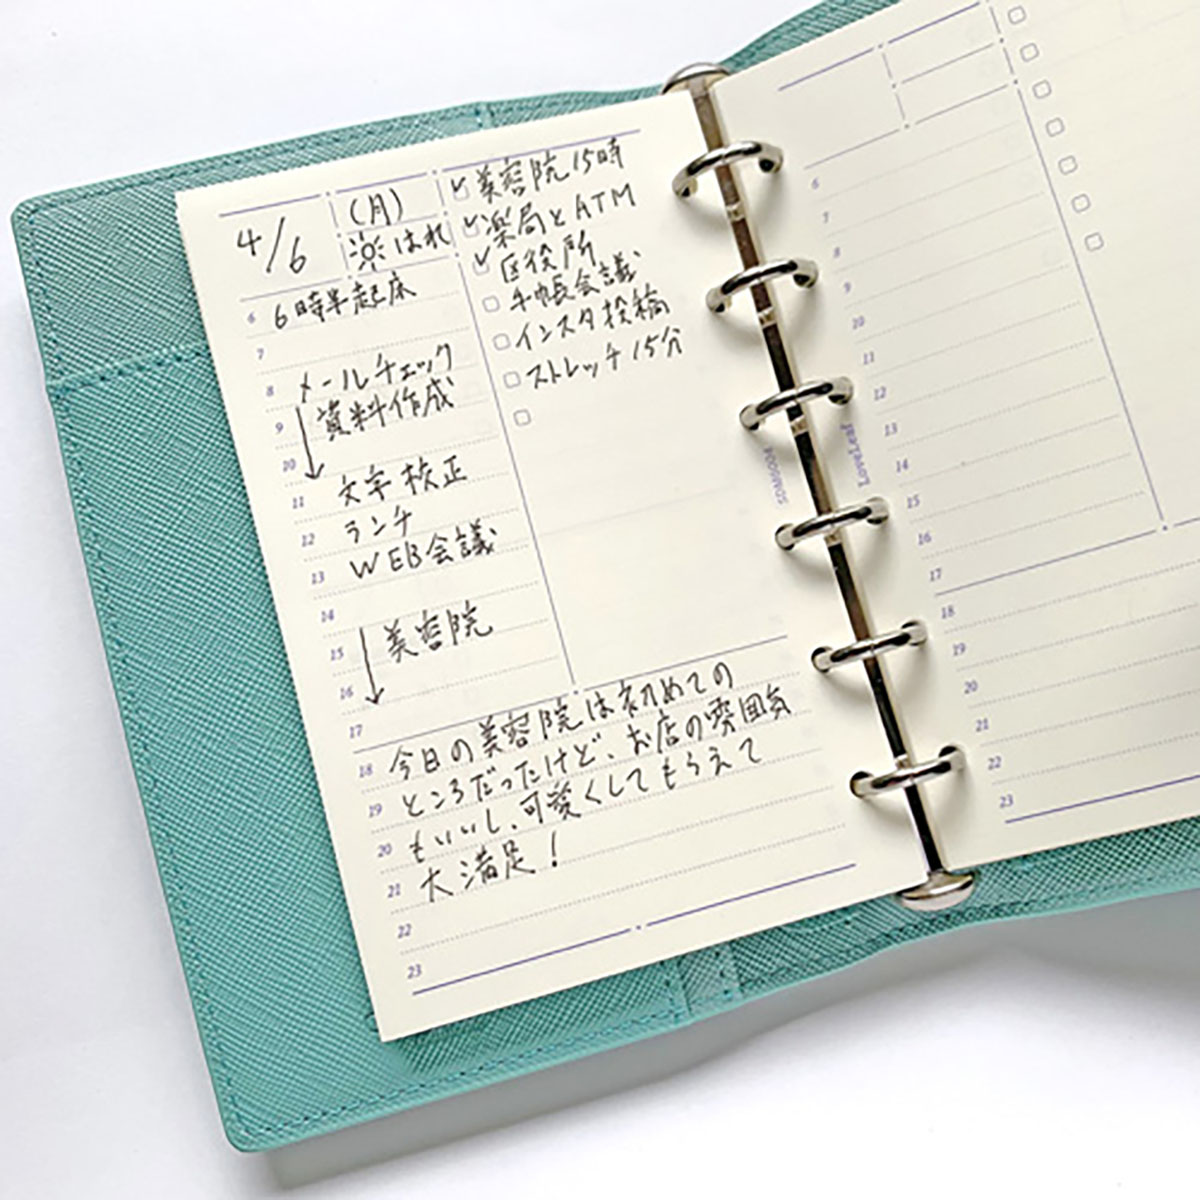 4/6
(月)
はれ
美容院15時
薬局とATM
区役所
手帳会議
インスタ投稿
ストレッチ15分
6 6時半起床
7
8 メールチェック
9 資料作成
10
11 文字校正
12 ランチ
13 WEB会議
14
15 美容院
16
17
18 今日の美容院は初めての
19 ところだったけど、お店の雰囲気
20 もいいし、可愛くしてもらえて
21 大満足!
22
23
LoveLeaf
6
7
8
9
10
11
12
13
14
15
16
17
18
19
20
21
22
23